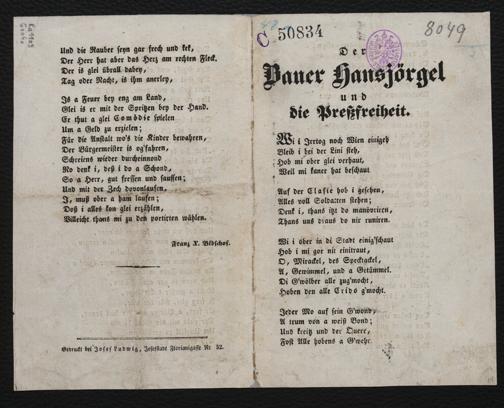 Und die Rauber seyn gar frech und kek,
Der Herr hat aber das Herz am rechten Fleck.
Der is glei übrall dabey,
Tag oder Nacht, is ihm anerley,
Is a Feuer bey eng am Land,
Glei is er mit der Spritzen bey der Hand.
Er thut a glei Comödie spielen
Um a Geld zu erzielen;
Für die Anstalt wo's die Kinder bewahren,
Der Bürgermeister is og'fahren,
Schreiens wieder durcheinnond
No denk i, deß i do a Schond,
So a Herr, gut fressen und saufen;
Und mit der Zech dovonlaufen,
J, muß ober a ham laufen;
Doß i alles kon glei erzählen,
Villeicht thans mi zu den portirten wählen.
Franz X. Bldschof.
Gedruckt bei Josef Ludwig, Josefstadt Florianigasse Nr 52.
C 50834
8049
Der
Bauer Hansjörgel
und
die Preßfreiheit.
Wi i Jrrtog noch Wien einigeh
Bleib i bei der Lini steh,
Hob mi ober glei verhaut,
Weil mi kaner hat beschaut
Auf der Clasie hob i gesehen,
Alles voll Soldatten stehen;
Denk i, thans itzt do manövriren,
Thans uns draus do nir ruiniren.
Wi i über in di Stadt einig'schaut
Hob i mi gor nit einitraut,
O, Mirackel, des Specktackel,
A, Gewimmel, und a Getümmel.
Di G'wölber alle zug'mocht,
Hoben den alle Crids g'mocht.
Jeder Mo auf sein G'wond,
A trum von a weiß Bond;
Und kreitz und der Querr,
Fost Alle hobens a G'wehr.